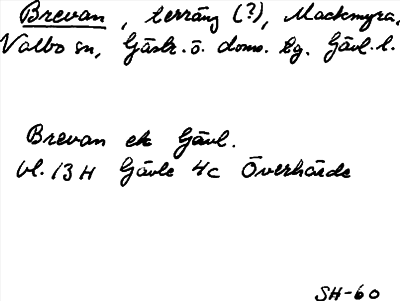 Brevan, terräng (?), Mackmyra,
Valbo sn, Gästr. ö. doms. hg. Gävl. l.
Brevan ek Gävl.
bl. 13 H Gävle 4c Överhärde
SH-60